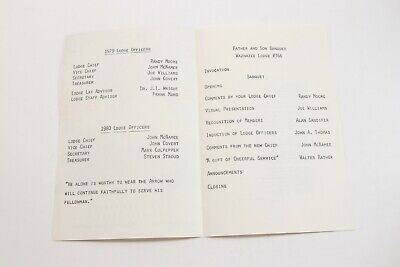 1979 Lodge Officers
Lodge Chief Randy Moore
Vice Chief John McNamee
Secretary Joe Williams
Treasurer John Covert
Lodge Lay Advisor Dr. J.I. Wright
Lodge Staff Advisor Frank
1980 Lodge Officers
Lodge Chief John McNamee
Vice Chief John Covert
Secretary Mark Culpepper
Treasurer Steven Stroud
"He alone is worthy to wear the Arrow who
will continue faithfully to serve his
fellowman."
Father and Son Banquet
Wazhazee Lodge #366
Invocation
Banquet
Opening
Comments by your Lodge Chief Randy Moore
Visual Presentation Joe Williams
Recognition of Members Alan Sandifer
Induction of Lodge Officers John A. Thomas
Comments from the new Chief John McNamee
"A gift of Cheerful Service" Walter Rather
Announcements
Closing